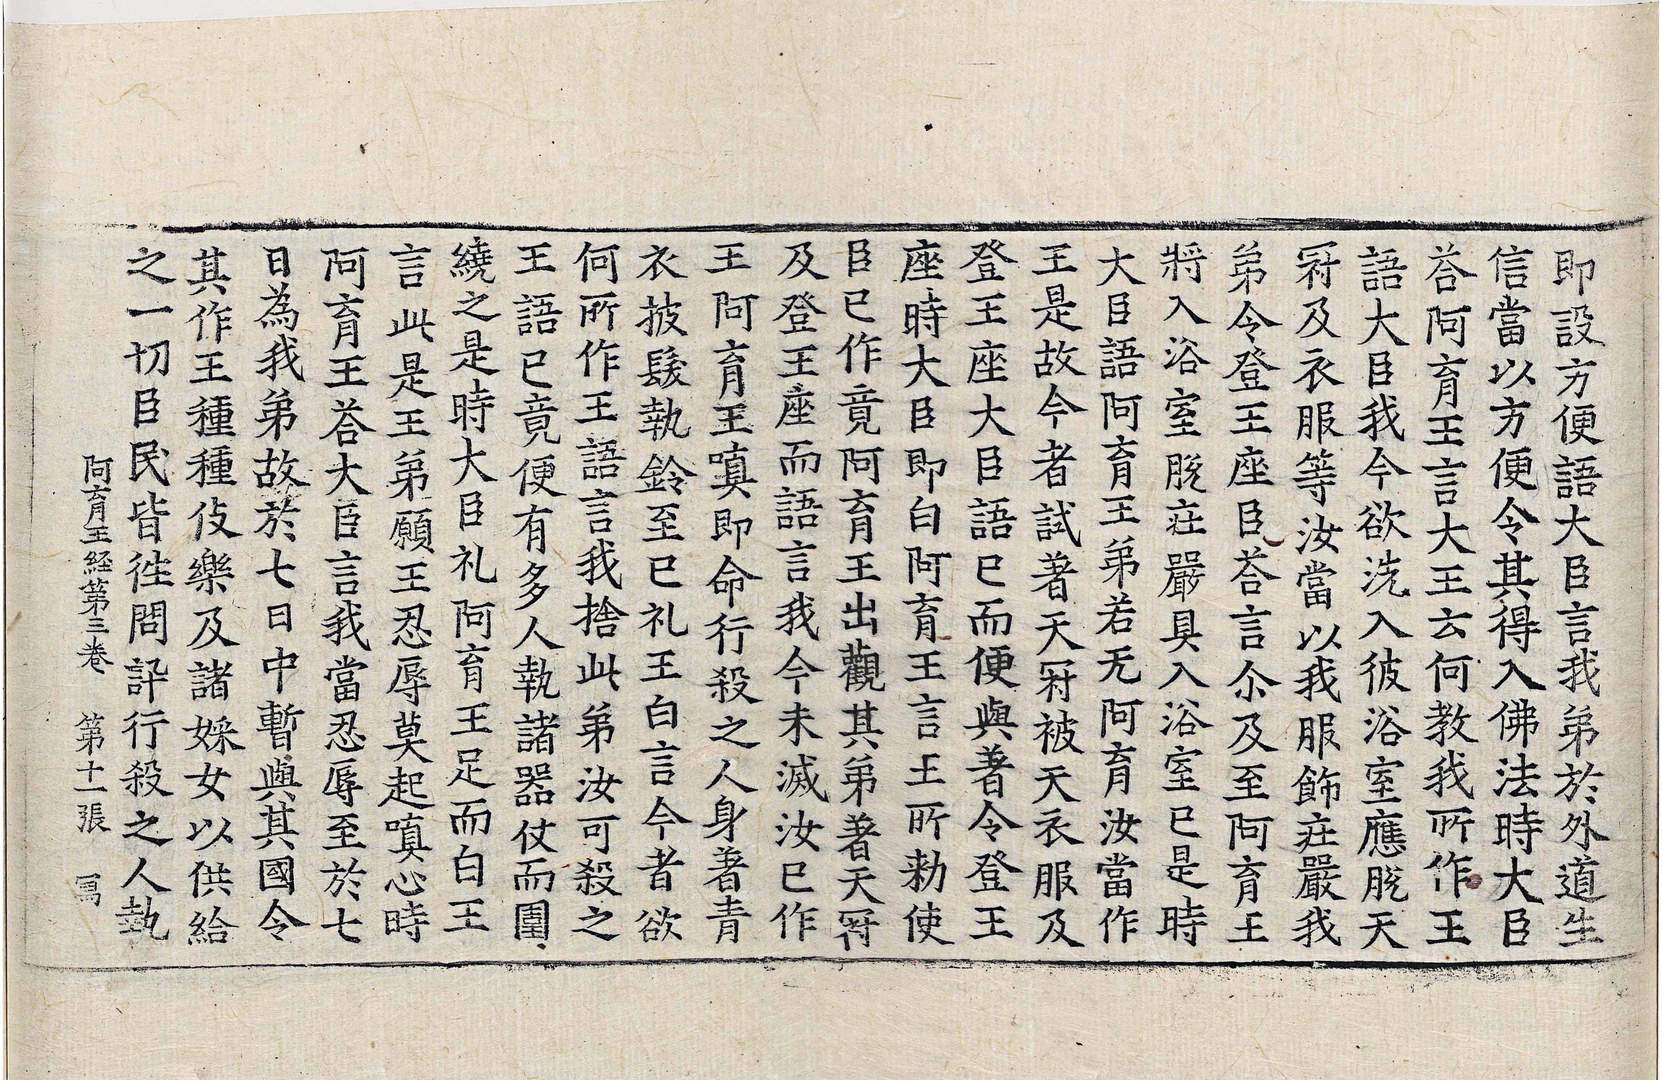 即設方便語大臣言我弟於外道生
信當以方便令其得入佛法時大臣
荅阿育王言大王云何教我所作王
語大臣我今欲洗入彼浴室應脫天
冠及衣服等汝當以我服飾莊嚴我
弟令登王座臣荅言尒及至阿育王
將入浴室脫莊嚴具入浴室已是時
大臣語阿育王弟若无阿育汝當作
王是故今者試著天冠被天衣服及
登王座大臣語已而便與著令登王
座時大臣即白阿育王言王所勑使
臣已作竟阿育王出觀其弟著天冠
及登王座而語言我今未滅汝已作
王阿育王嗔即命行殺之人身著青
衣披髮執鈴至已礼王白言今者欲
何所作王語言我捨此弟汝可殺之
王語已竟便有多人執諸器仗而圍
繞之是時大臣礼阿育王足而白王
言此是王弟願王忍辱莫起嗔心時
阿育王荅大臣言我當忍辱至於七
日為我弟故於七日中暫與其國令
其作王種種伎樂及諸婇女以供給
之一切臣民皆往問訊行殺之人執
阿育王経第三卷　第十一張　寫